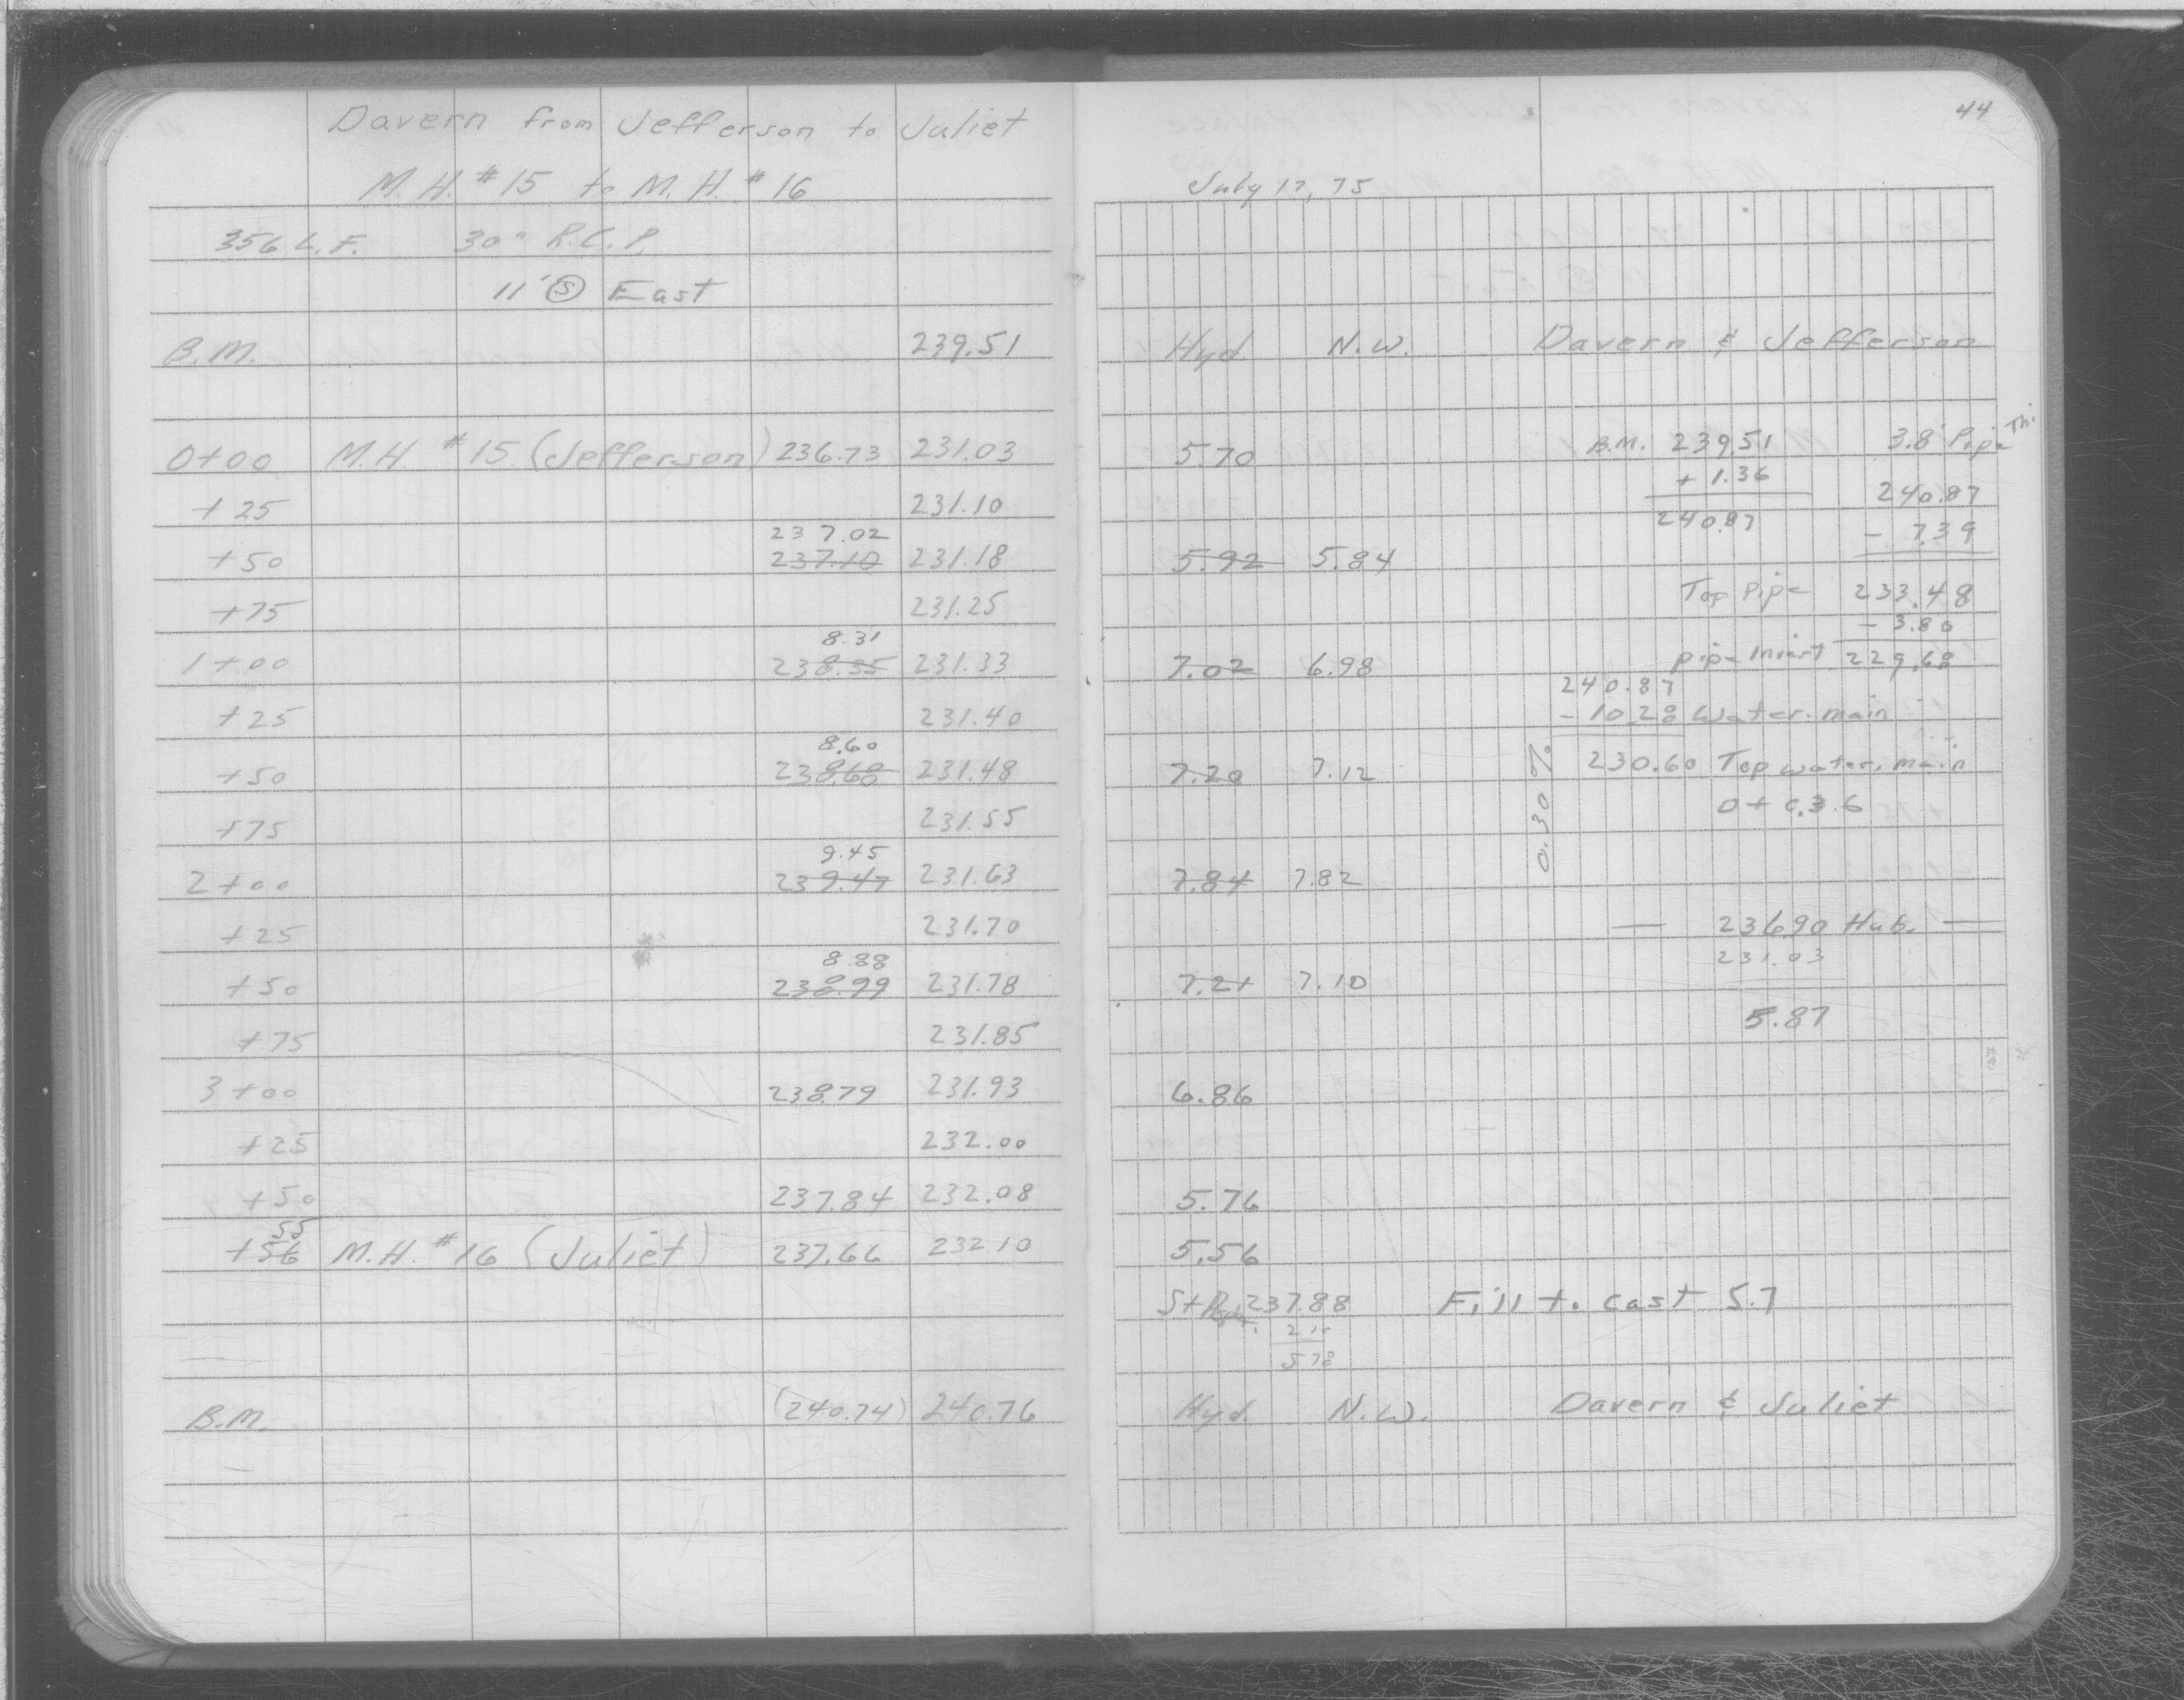 Davern from Jefferson to Juliet
M.H. #15 to M.H. #16
356 L.F. 30" R.C.P.
11' Ⓢ East
B.M. 239.51
0+00 M.H. #15 (Jefferson) 236.73 231.03
+25 231.10
237.02
+50 237.10 231.18
+75 231.25
8.31
1+00 238.35 231.33
+25 231.40
8.60
+50 238.68 231.48
+75 231.55
9.45
2+00 239.47 231.63
+25 231.70
8.88
+50 238.99 231.78
+75 231.85
3+00 238.79 231.93
+25 232.00
+50 237.84 232.08
55
+56 M.H. #16 (Juliet) 237.66 232.10
B.M. (240.74) 240.76
44
July 17, 75
Hyd. N.W. Davern & Jefferson
5.70 B.M. 239.51 3.8' Pipe
+ 1.36 240.87
240.87 - 7.39
5.92 5.84
Top Pipe 233.48
- 3.80
7.02 6.98 pipe Invert 229.68
240.87
- 10.28 Water main
7.20 7.12 0.30% 230.60 Top water main
0+ 0.3.6
7.84 7.82
— 236.90 Hub. —
231.03
7.21 7.10
5.87
6.86
5.76
5.56
237.88 Fill to cast 5.7
2 10
5 78
Hyd. N.W. Davern & Juliet